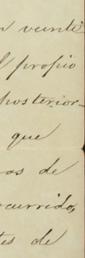 n veinte
l propio
posterior-
que
os de
ocurrido,
tes de